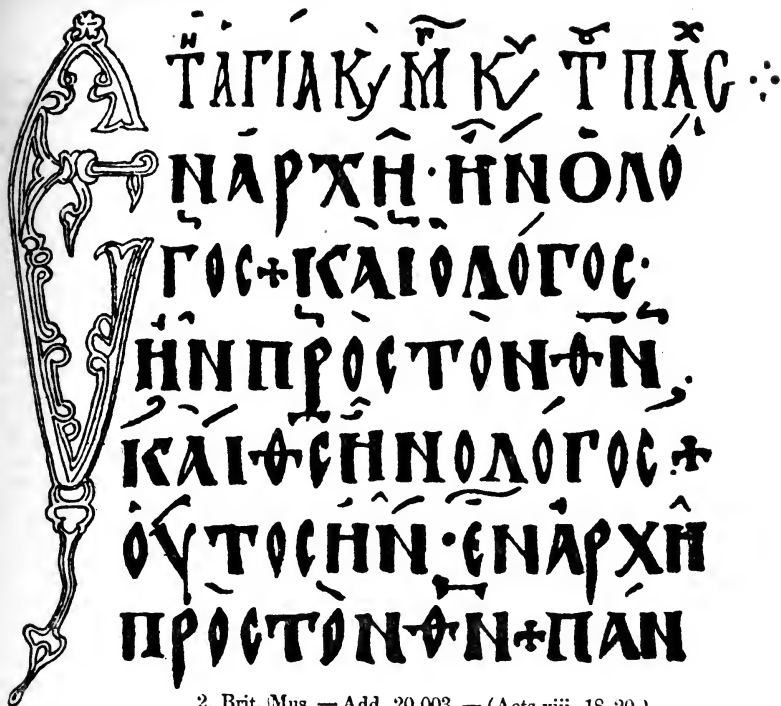 ΤΗ ΑΓΙΑ Κ͵ Μ̅Γ Κ͵ Τ̅ ΠΑΣΧ ⁘
ΕΝ ΑΡΧΗ· ΗΝ Ο ΛΟ
ΓΟC+ΚΑΙ Ο ΛΟΓΟC·
ΗΝ ΠΡΟC ΤΟΝ Θ̅Ν̅.
ΚΑΙ Θ̅C̅ ΗΝ Ο ΛΟΓΟC+
ΟΥΤΟC ΗΝ· ΕΝ ΑΡΧΗ
ΠΡΟC ΤΟΝ Θ̅Ν̅+ΠΑΝ
2. Brit. Mus. — Add. 20,003. — (Acts viii. 18–20.)